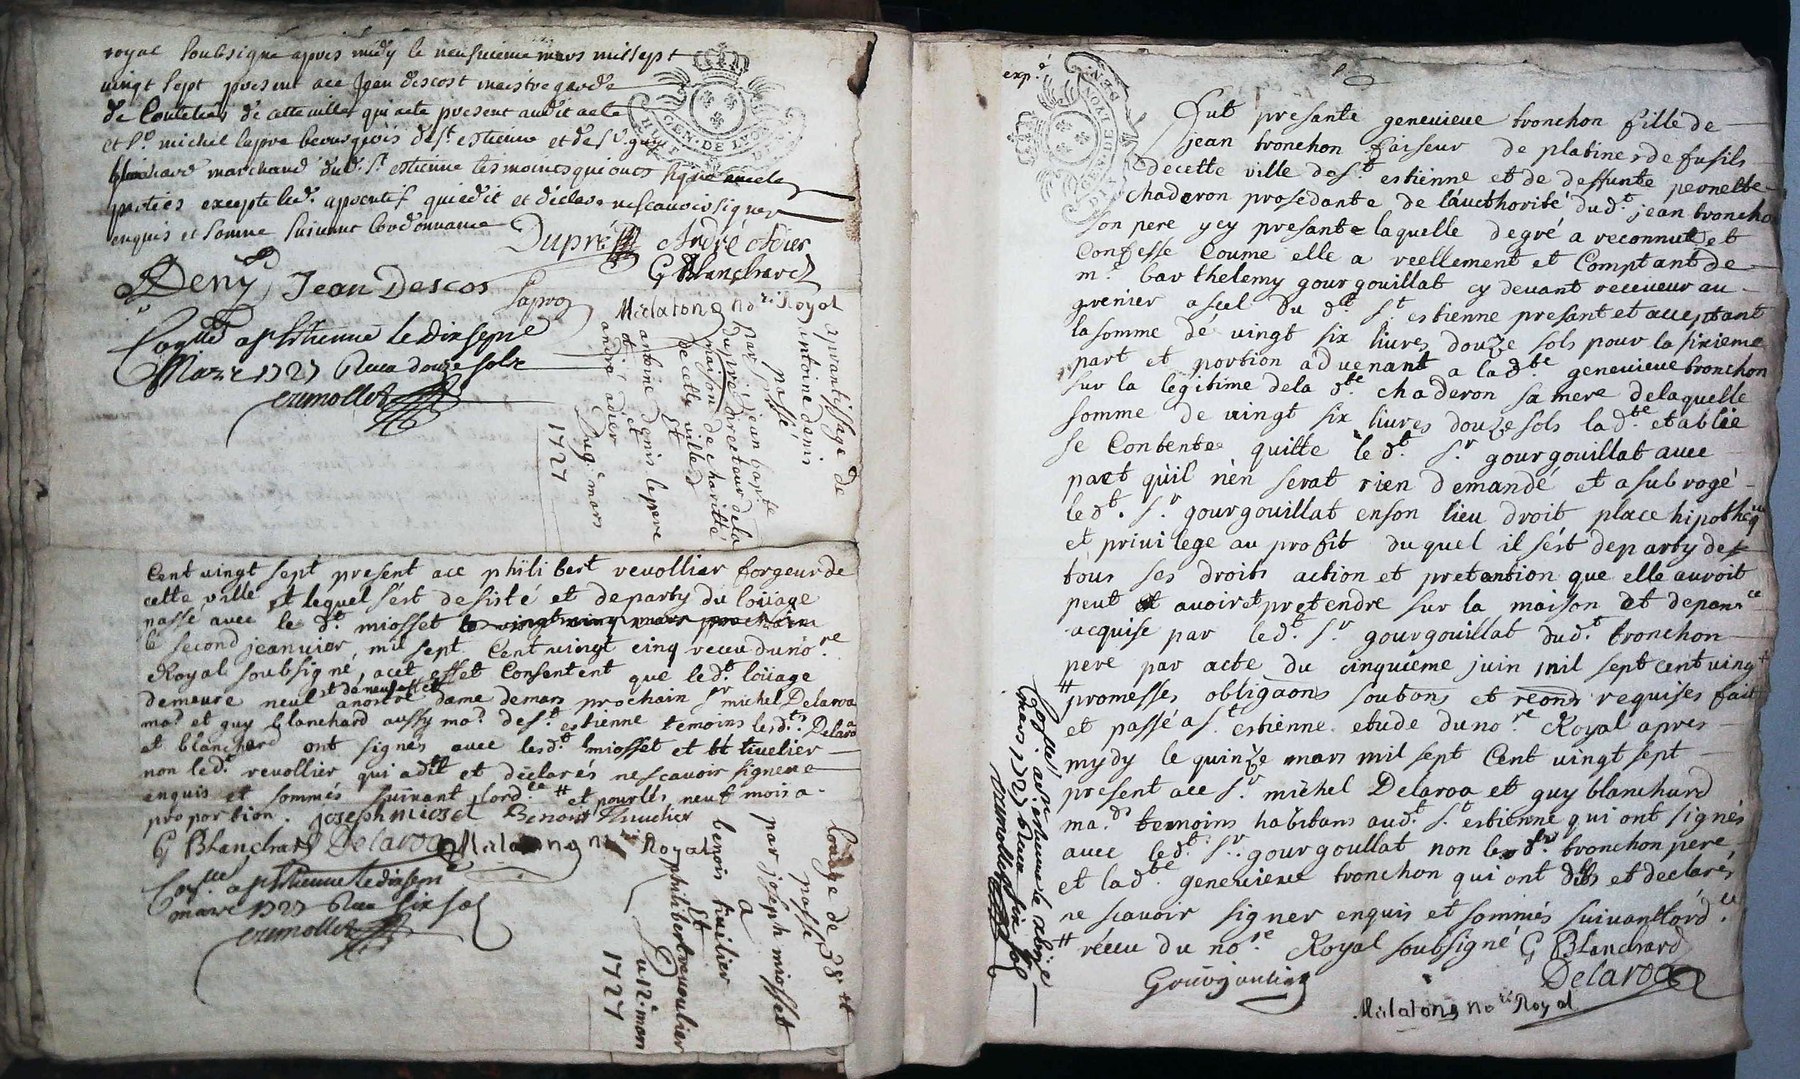 royal soubsigné apres midy le neufvieme mars mil sept
vingt sept present ace Jean descost maistre garde
de Coutelier de cette ville qui a este present audit acte
et Sr. michel lapro bourgeois de St. estienne et de Sr. guy
blanchard marchand dud. St. estienne tesmoins qui ont signé avec les
parties excepté led. aprentif qui a dit et declaré ne scavoir signer
enquis et sommé suivant l'ordonnance
Dupré André Adier
G Blanchard
Deny Jean Descos
lapro
Malatong no.re Royal
Con.llé a St Etienne le dix sept
Mars 1727 Receu douze sols
aprantissage de
antoine denis
passé
par sr jean bap.te
dupré directeur de la
maison de charitté
de cette ville d
St
antoine denis le pere
et
andré adier
Du 9e mars
1727
Cent vingt sept present ace philibert revollier forgeur de
cette ville et lequel s'est desisté et departy du loüage
passé avec le dt miosset le vingt cinq mars prochain
le second jeanvier, mil sept Cent vingt cinq receu du no.re
Royal soubsigné, a cet effet Consentent que le dt. loüage
et de nul effet
demeure neul a nostre dame de mars prochain sr michel Delaroa
mad et guy blanchard aussy mad. de St. estienne temoins lesdts. Delaroa
et blanchard ont signés avec lesdt. miosset et bt tivelier
non ledt. revollier qui a dit et declarés ne scavoir signer
enquis et sommés suivant l'ord.ce # et pour les neuf mois a
proportion. Joseph miosset Benoist Tiuelier
G Blanchard Delaroa Malatong no.re Royal
Con.llé a St Etienne le dix sept
mars 1727 Receu six sols
loüage de 38 tt
passé
par joseph miosset
a
benois tuilier
et
philibert revoulier
Du 12 mars
1727
exp.é
Fut presante genevieve tronchon fille de
jean tronchon faiseur de platines de fusils
de cette ville de St estienne et de deffunte peronette
chaderon prosedante de l'aucthorité du dt. jean troncho
son pere ycy presante laquelle de gré a reconnu et
Confesse Coume elle a reellement et Comptant de
mr. barthelemy gourgouillat cy devant receveur au
grenier a sel du dt. St. estienne presant et acceptant
la somme de vingt six livres douze sols pour la sixieme
part et portion advenant a la dte genevieve tronchon
sur la legitime de la dte. chaderon sa mere de laquelle
somme de vingt six livres douze sols la dte. establie
se Contente quitte le dt. Sr gourgouillat avec
pact qu'il n'en serat rien demandé et a subrogé
le dt. Sr. gourgouillat en son lieu droit place hipotheq
et privilege au profit duquel il s'est departy de
tous ses droits action et pretantion que elle auroit
peut et avoir et pretendre sur la maison et depan.ce
acquise par le dt. Sr gourgouillat du dt. tronchon
pere par acte du cinquieme juin mil sept cent ving
# promesses obligaons soubons et reons requises fait
et passé a St estienne etude du no.re Royal apres
mydy le quinze mars mil sept Cent vingt sept
present ace Sr. michel Delaroa et guy blanchard
mads temoins habitans audt. St estienne qui ont signés
avec ledt. Sr. gourgoullat non le dt. tronchon pere,
et la dte genevieve tronchon qui ont dits et declarés
ne scavoir signer enquis et sommés suivant l'ord.ce
# receu du no.re Royal soubsigné G Blanchard
Gourgoulliat Delaroa
Malatong no.re Royal
mars 1727 Receu six sols